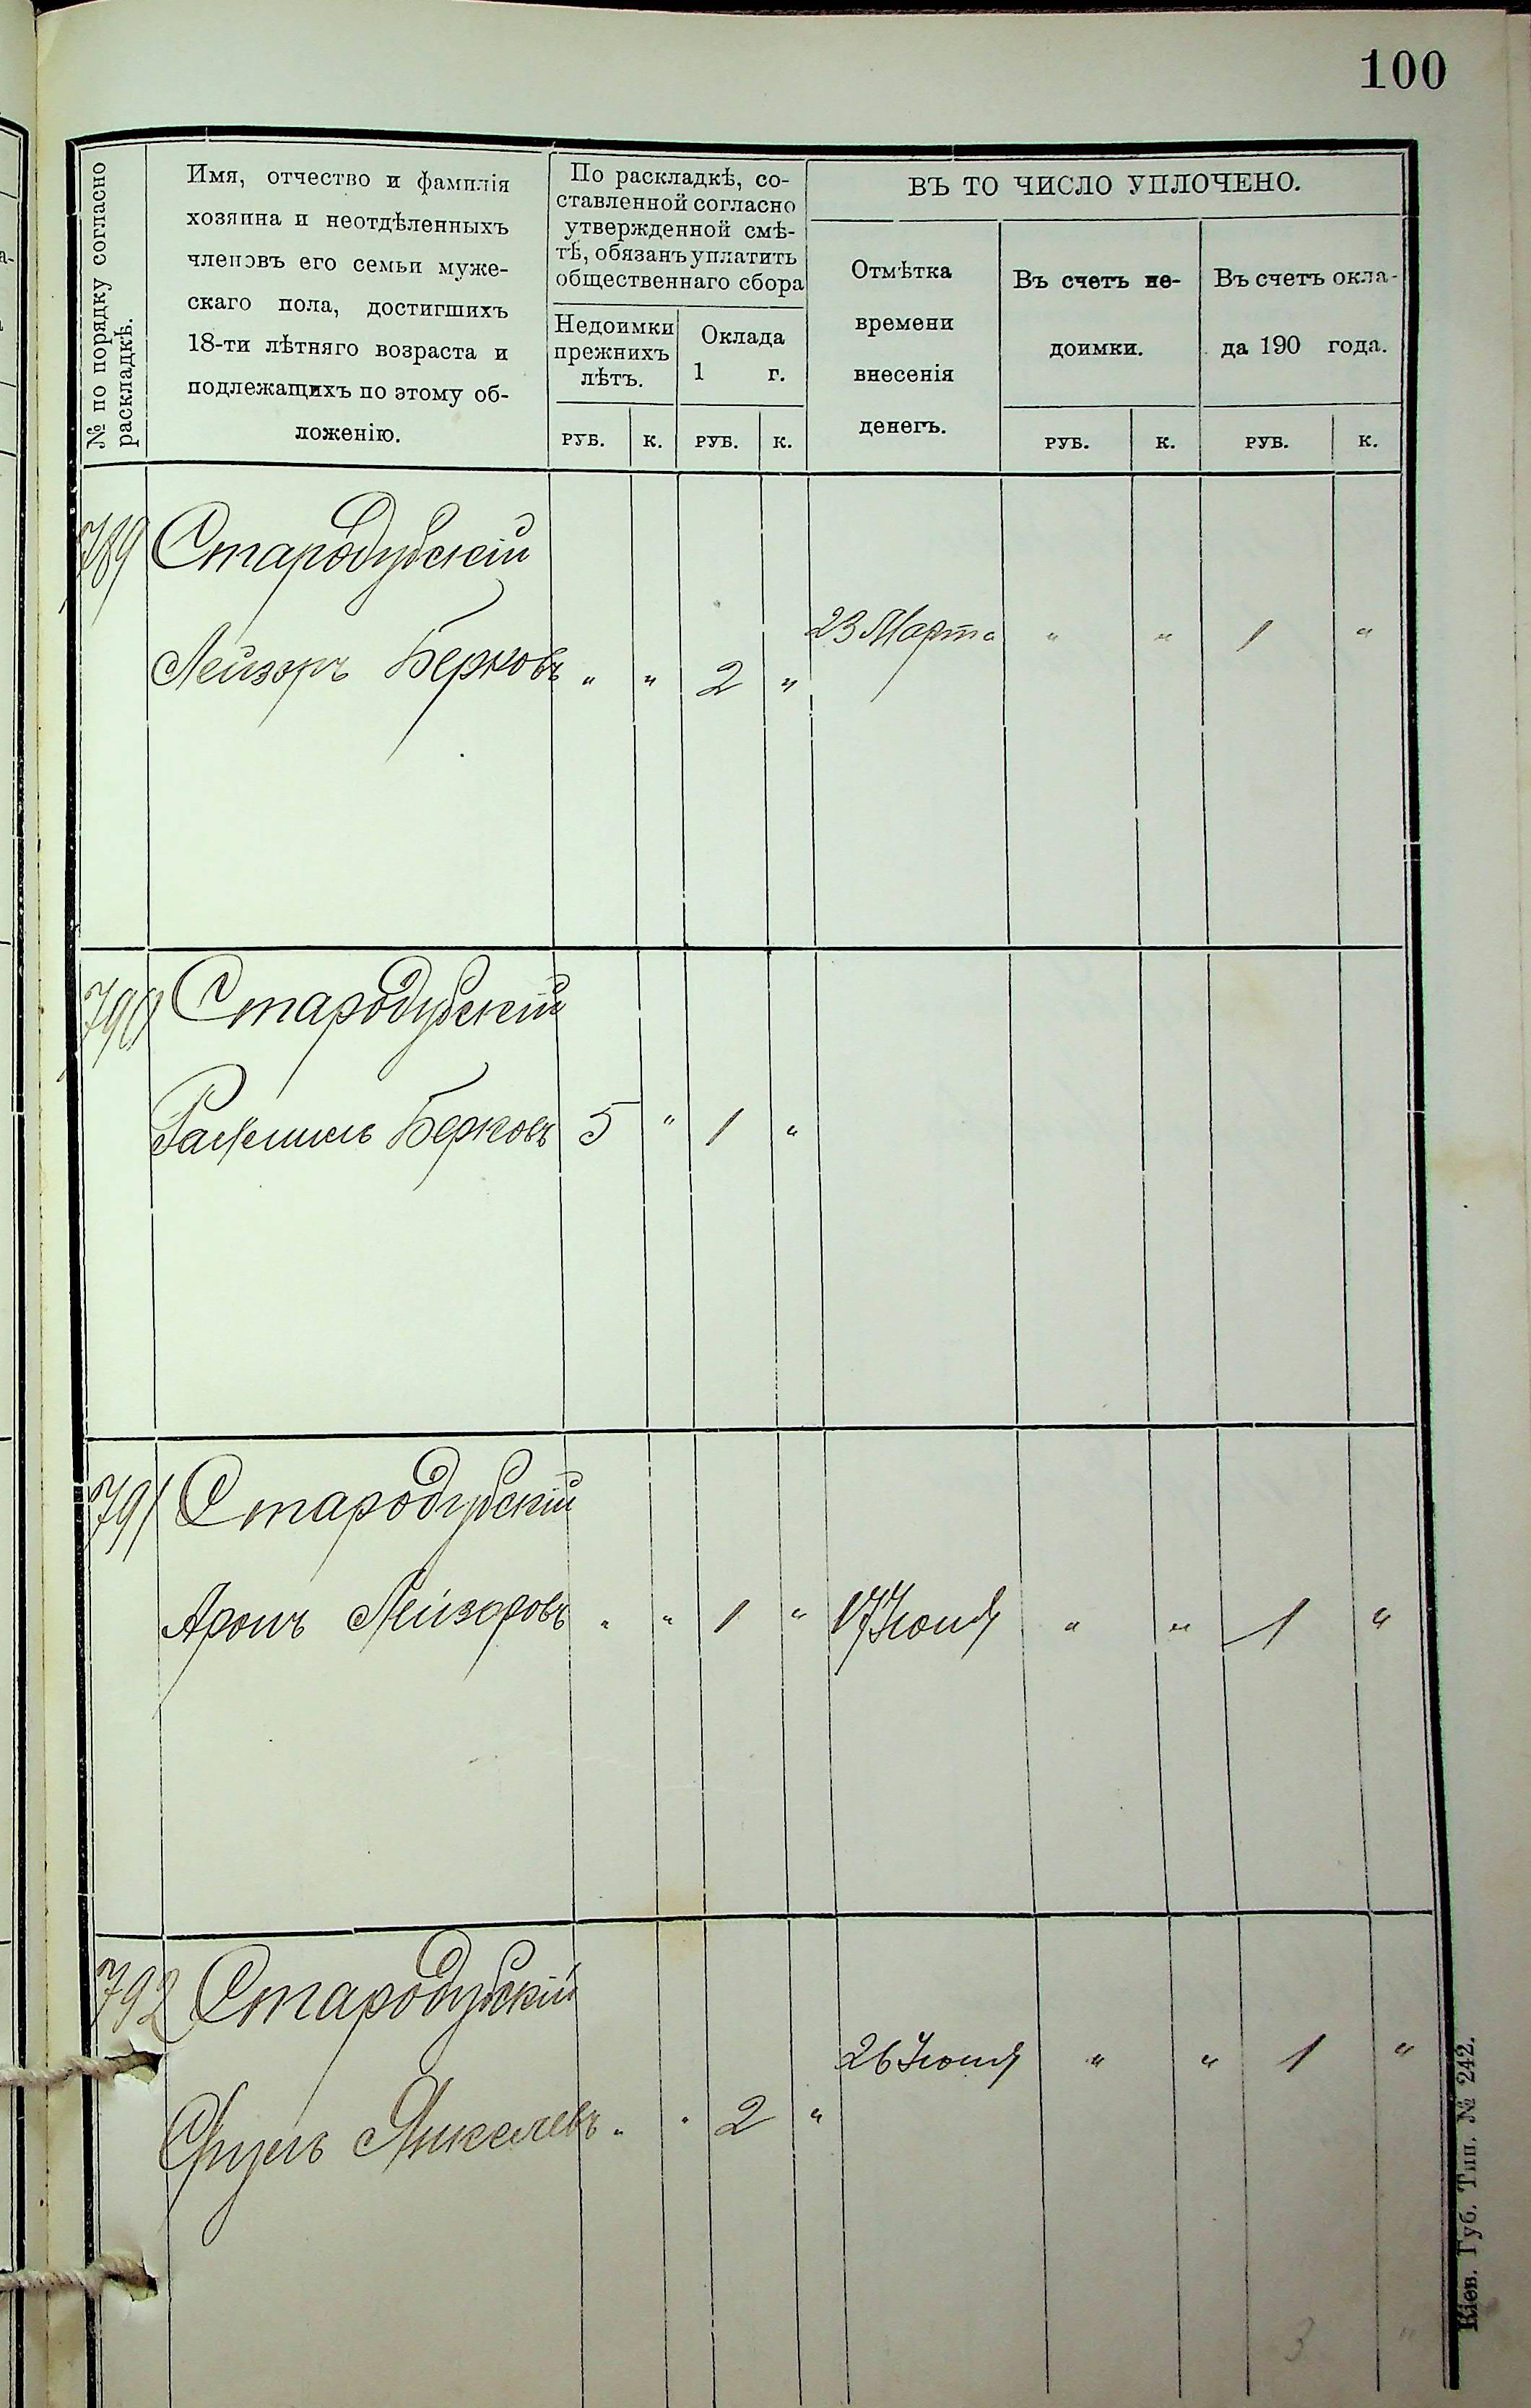 100
№ по порядку согласно
раскладкѣ.
Имя, отчество и фамилія
хозяина и неотдѣленныхъ
членовъ его семьи муже-
скаго пола, достигшихъ
18-ти лѣтняго возраста и
подлежащихъ по этому об-
ложенію.
По раскладкѣ, со-
ставленной согласно
утвержденной смѣ-
тѣ, обязанъ уплатить
общественнаго сбора
Недоимки
прежнихъ
лѣтъ.
Оклада
1 г.
РУБ. К. РУБ. К.
ВЪ ТО ЧИСЛО УПЛОЧЕНО.
Отмѣтка
времени
внесенія
денегъ.
Въ счетъ не-
доимки.
Въ счетъ окла-
да 190 года.
РУБ. К. РУБ. К.
789 Стародубскій
23 Марта " " 1 "
Лейзоръ Берковъ " " 2 "
790 Стародубскій
Берковъ 5 " 1 "
791 Стародубскій
Аронъ Лейзоровъ " " 1 " 17 Іюня " " 1 "
792 Стародубскій
26 Іюня " " 1 "
Сруль Янкелевъ " " 2 "
3 "
Кіев. Губ. Тип. № 242.